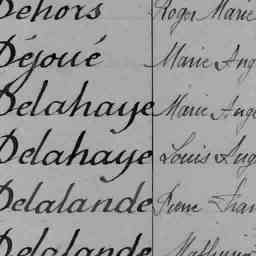 Dehors Roger Marie
Déjoué Marie Ang
Delahaye Marie Ange
Delahaye Louis Aug
Delalande Pierre Fran
Delalande Mathurin